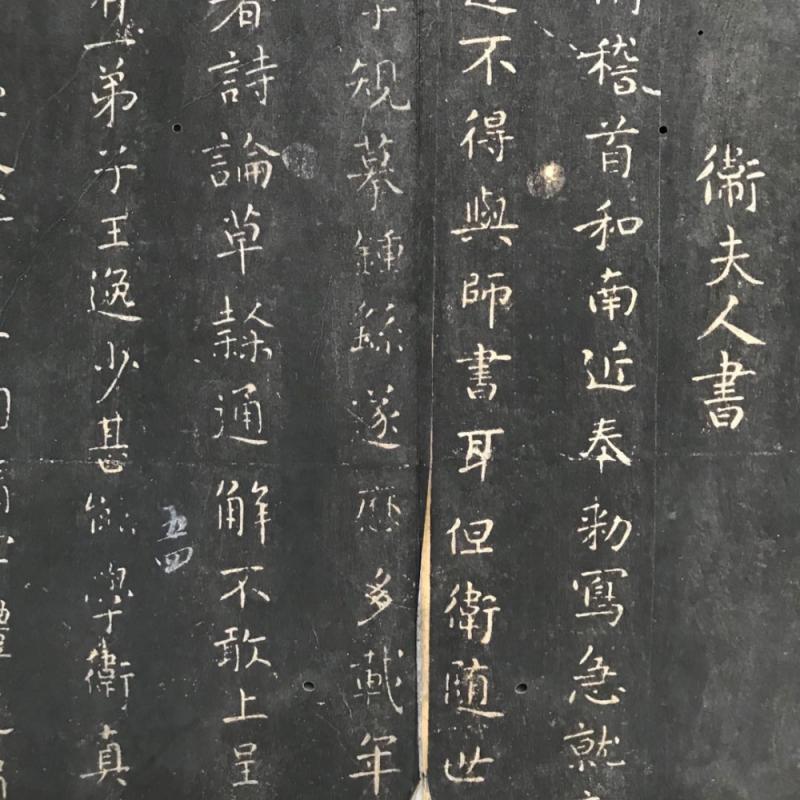 衛夫人書
稽首和南近奉勑寫急就
不得與師書耳但衛隨世
規摹鍾繇遂歷多載年
詩論草隸通解不敢上呈
弟子王逸少甚能學衛真
五四